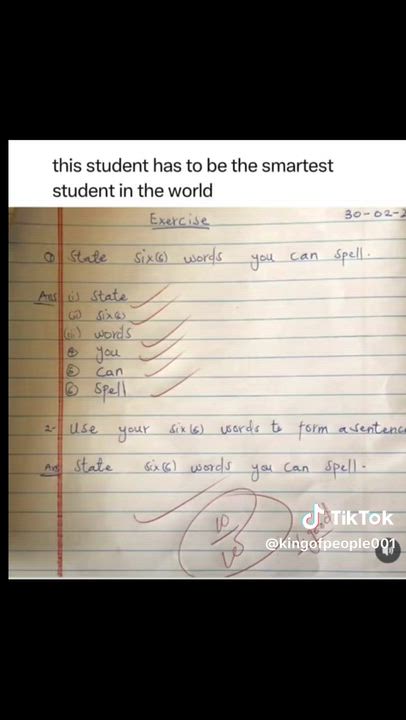 this student has to be the smartest
student in the world
Exercise
30-02-2
① State six(6) words you can spell.
Ans (i) State
(ii) six(6)
(iii) words
④ you
⑤ can
⑥ Spell
2- Use your six(6) words to form a sentence
Ans State six(6) words you can spell.
10
10
TikTok
@kingofpeople001